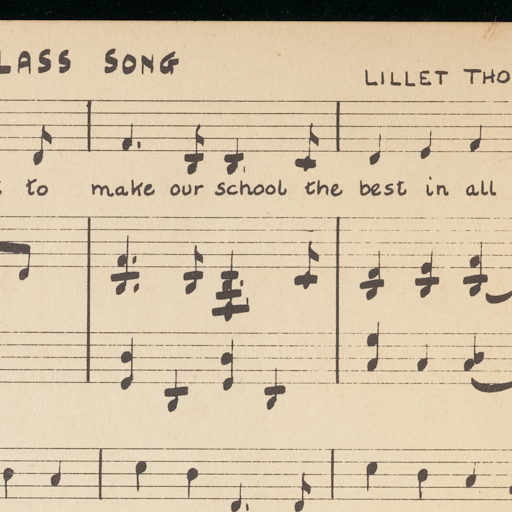 LASS SONG
LILLET THO
to make our school the best in all